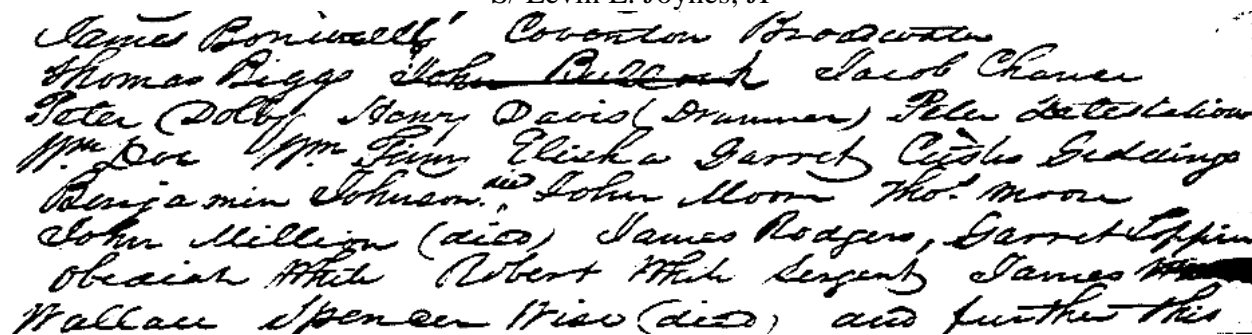 S/ Levin L. Joynes, JP
James Boniwell, Coventon Broadwater
Thomas Biggs John Bullock Jacob Chance
Peter Dolby Henry Davis (Drummer) Peter Detestation
Wm Doe Wm Finny Elisha Garret Custis Geddings
Benjamin Johnson, died John Moore Thos. Moore
John Million (died) James Rodgers, Garret Toppin
Obediah White Robert White Sergent James
Wallace Spencer Wise (died) and further this